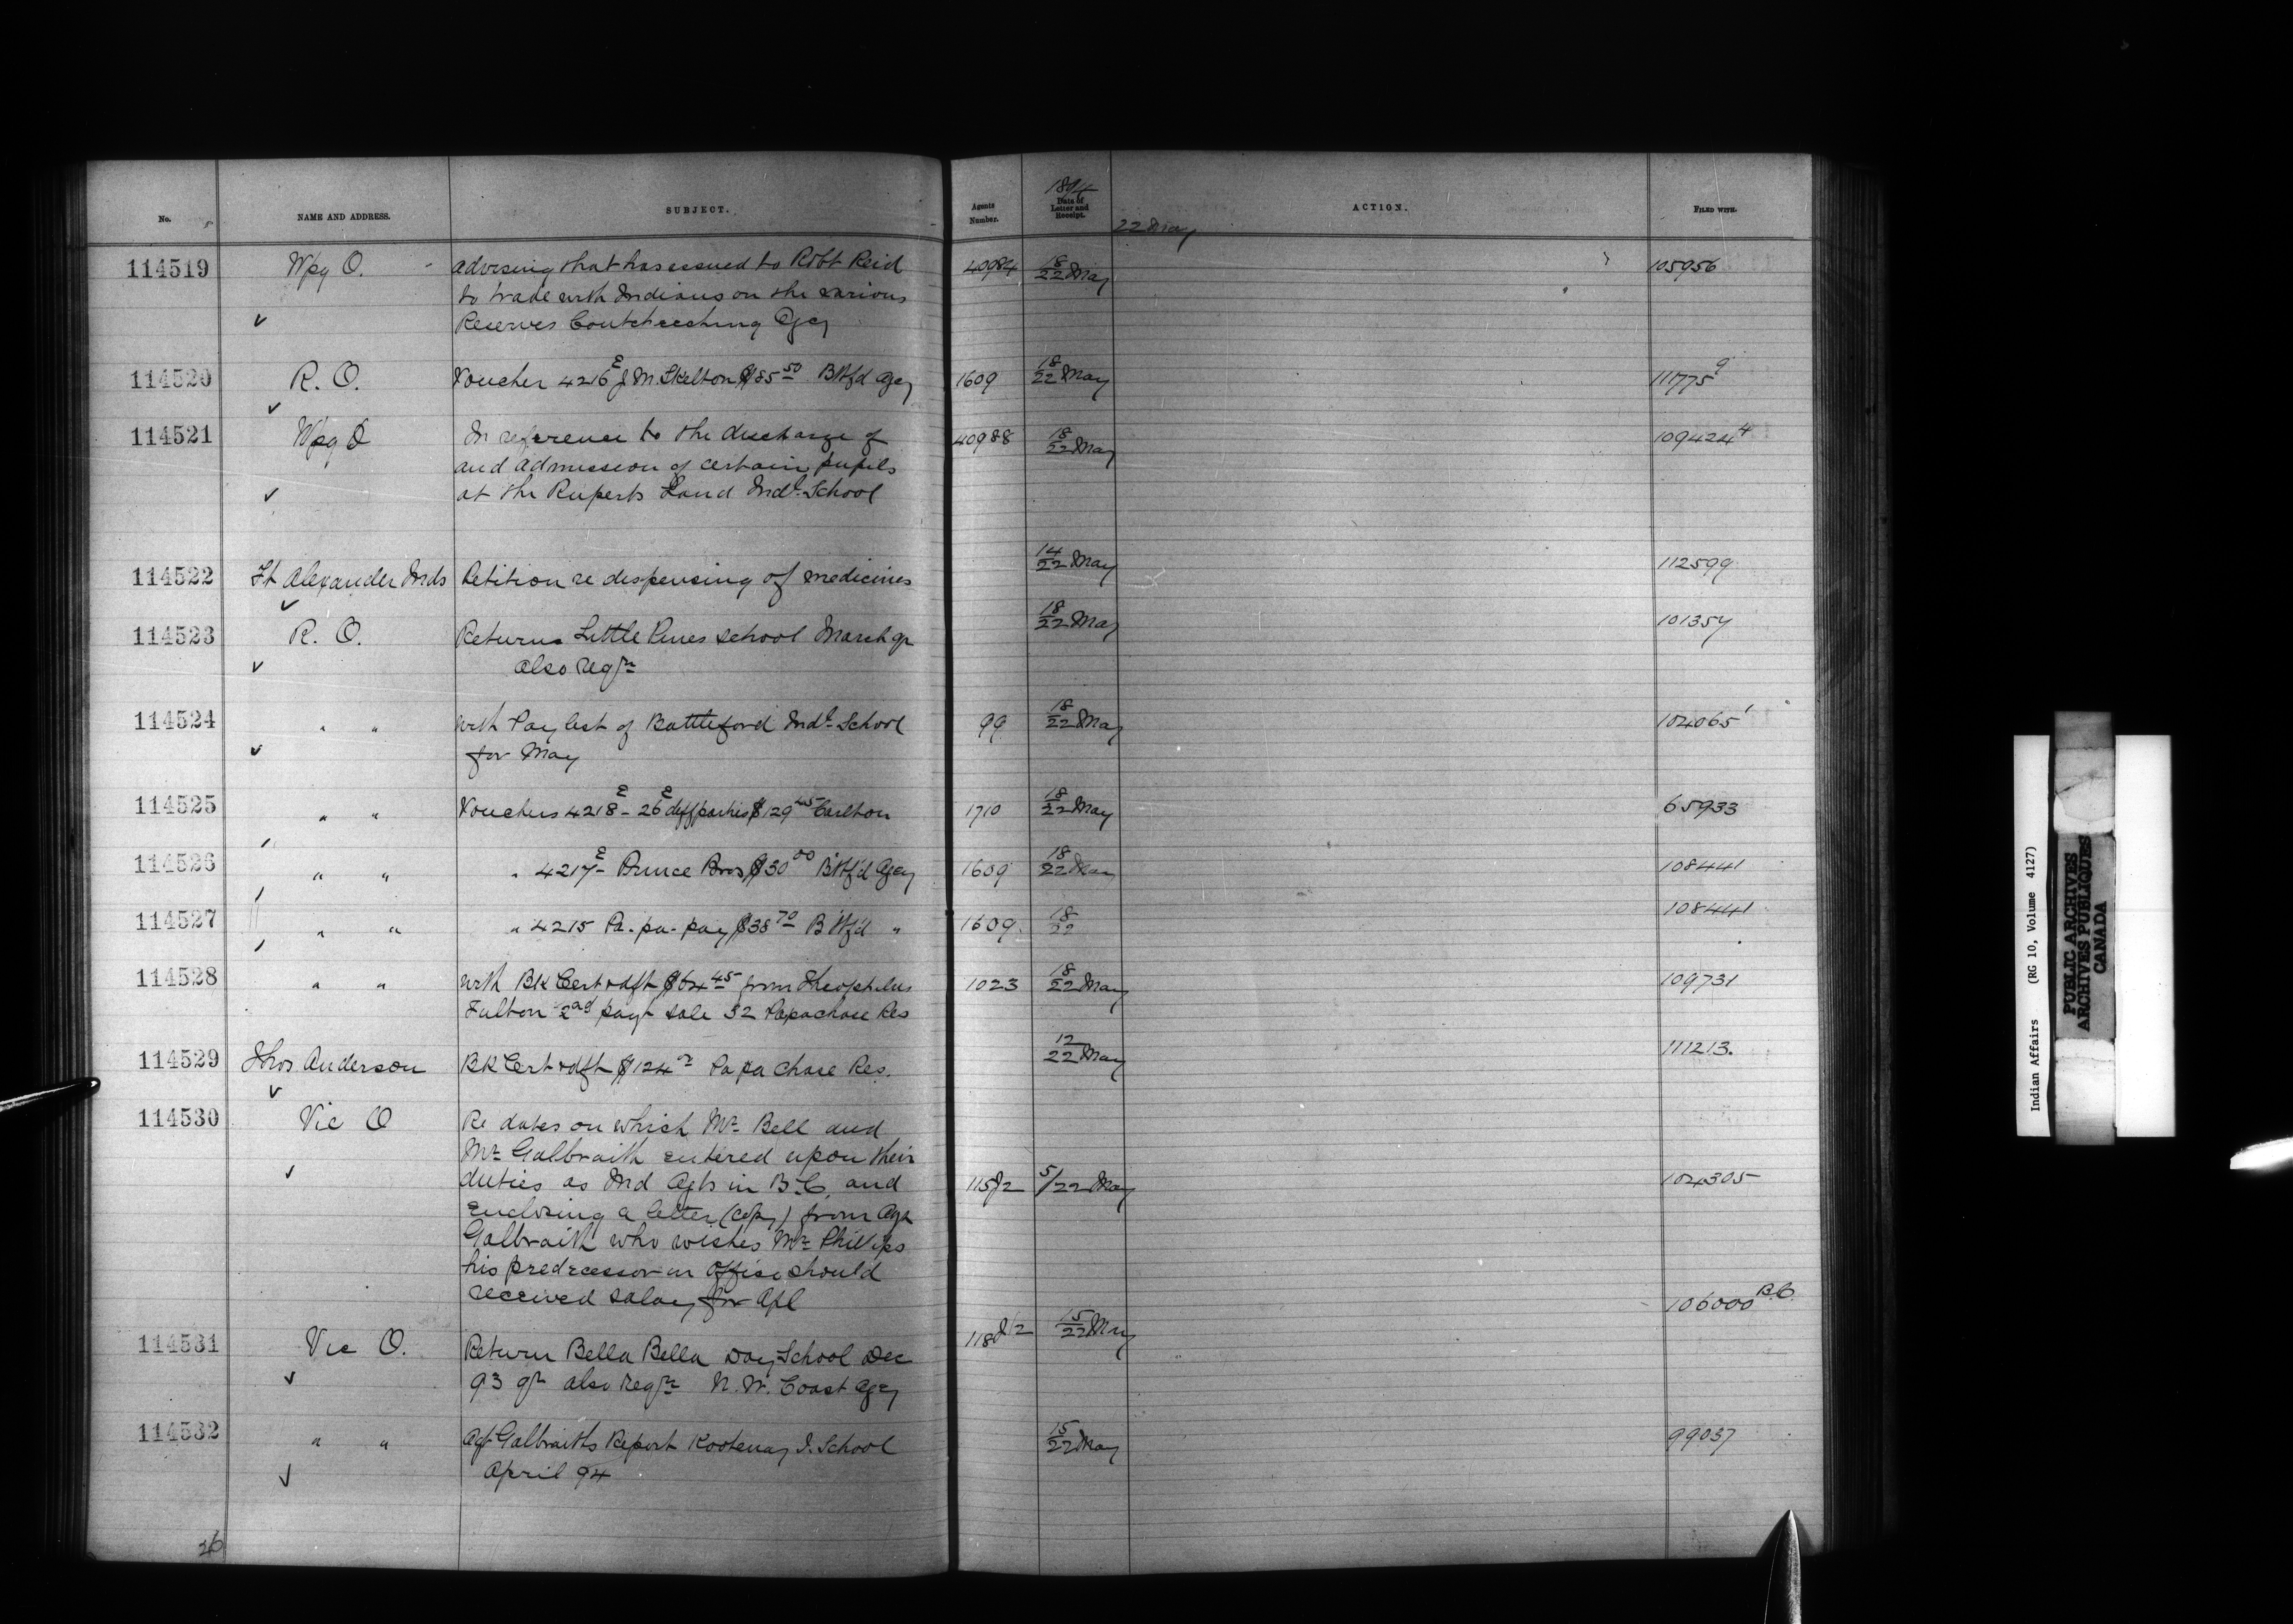 No. NAME AND ADDRESS. SUBJECT. Agents Number. 1894 Date of Letter and Receipt. ACTION. FILED WITH.
22 May
114519 Wpg O. advising that has issued to Robt Reid 40984 18/22 May 105956
to trade with Indians on the various
✓ Reserves Coutcheeching Agcy
114520 R. O. Voucher 4216E J M. Skelton $85 50 Btlfd Agcy 1609 18/22 May 111775 9
✓
114521 Wpg O In reference to the discharge of 40988 18/22 May 109424 4
and admission of certain pupils
✓ at the Ruperts Land Indl. School
114522 Ft Alexander Inds Petition re dispensing of medicines 14/22 May 112599
✓
114523 R. O. Returns Little Pines school March qr 18/22 May 101357
✓ also reqn
114524 " " with Paylist of Battleford Indl. School 99 18/22 May 104065 1
✓ for May
114525 " " Vouchers 4218E - 26E diff parties $129 45 Carlton 1710 18/22 May 65933
114526 " " " 4217E Prince Bros $30 00 Btlfd Agcy 1609 18/22 May 108441
114527 " " " 4215 Pa-pa-pay $38 70 Btlfd " 1609 18/22 108441
114528 " " with Bk Cert dft $64 45 from Theophilus 1023 18/22 May 109731
Fulton 2nd payt sale 32 Papachase Res
114529 Thos Anderson Bk Cert dft $124 Papachase Res. 12/22 May 111213.
✓
114530 Vic O Re dates on which Mr Bell and
Mr Galbraith entered upon their
✓ duties as Ind Agts in B.C. and 115J2 5/22 May 104305
enclosing a letter (copy) from Agt
Galbraith who wishes Mr Phillips
his predecessor in office should
received salary for Apl
114531 Vic O. Return Bella Bella Day School Dec 118J2 15/22 May 106000 B.C.
✓ 93 qr also reqn N.W. Coast Agcy
114532 " " Agt Galbraiths Report Kootenay I. School 15/22 May 99037
✓ April 94
26
Indian Affairs (RG 10, Volume 4127)
PUBLIC ARCHIVES
ARCHIVES PUBLIQUES
CANADA